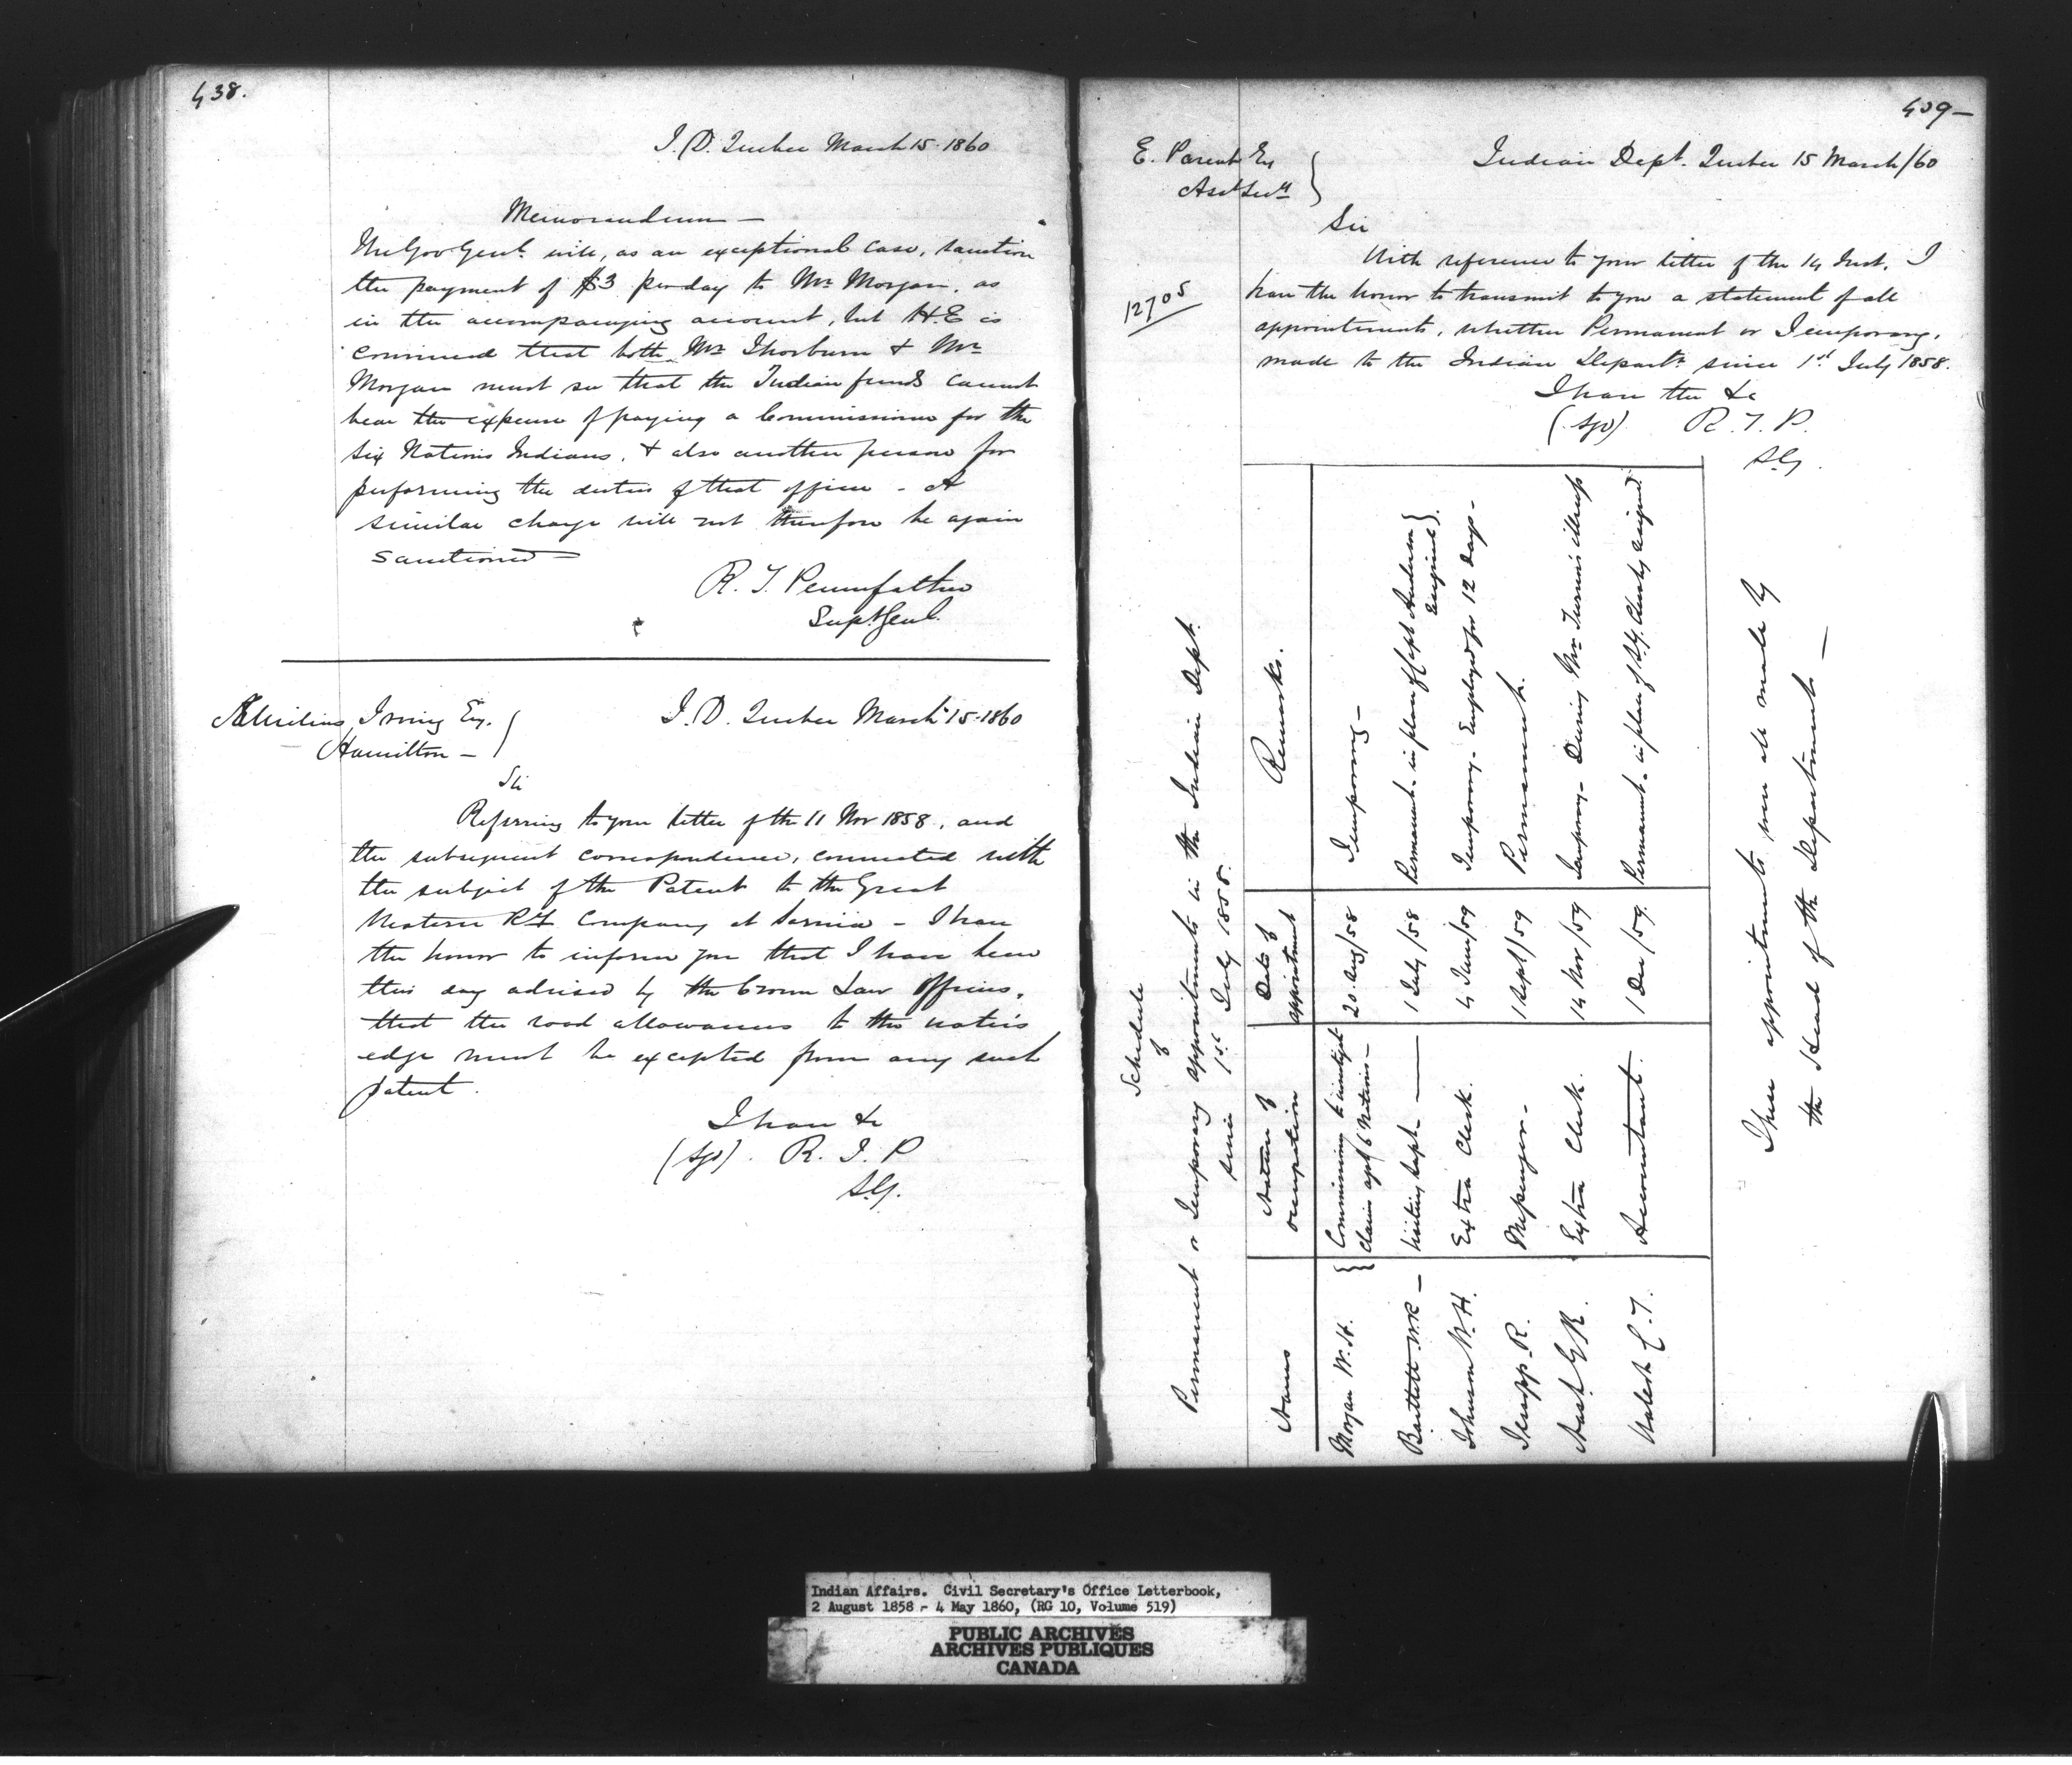 438.
I.D. Quebec March 15. 1860
Memorandum —
The Gov. Genl. will, as an exceptional case, sanction
the payment of $3 per day to Mr Morgan, as
in the accompanying account, but H.E is
convinced that both Mr Thorburn & Mr
Morgan must see that the Indian funds cannot
bear the expense of paying a Commissioner for the
Six Nations Indians, & also another person for
performing the duties of that office - A
similar charge will not therefore be again
sanctioned —
R. T. Pennefather
Supt Genl.
Æmilius Irving Esq.
Hamilton —
I. D. Quebec March 15. 1860
Sir
Referring to your letter of the 11 Nov 1858, and
the subsequent correspondence, connected with
the subject of the Patent to the Great
Western RY Company at Sarnia - I have
the honor to inform you that I have been
this day advised by the Crown Law Officers,
that the road allowances to the water's
edge must be excepted from any such
patent.
I have &c
(sgd). R. T. P
S.G.
409 —
E. Parent Esq
Asst Secy
Indian Dept. Quebec 15 March/60
Sir
With reference to your letter of the 14 Inst. I
12705
have the honor to transmit to you a statement of all
appointments, whether Permanent or Temporary,
made to the Indian Departt since 1st July 1858.
I have the &c
(sgd) R. T. P.
S.G.
Schedule
of
Permanent or Temporary appointments in the Indian Dept.
since 1st July 1858.
Names | Nature of occupation | Date of appointment | Remarks.
Morgan W. H. | Commissioner to investigate claims agst 6 Nations — | 20 Aug/58 | Temporary —
Bartlett W.R — | Visiting Supt — | 1 July/58 | Permanent - in place of Capt Anderson resigned.
Johnson W. H. | Extra Clerk. | 4 June/59 | Temporary - Employed for 12 days -
Jessopp R. | Messenger - | 1 Sept/59 | Permanent.
G R. | Extra Clerk. | 14 Nov/59 | Temporary - During Mr Turner's illness
Walcot C. T. | Accountant. | 1 Dec/59. | Permanent - in place of S.Y. Chesley resigned.
These appointments were all made by
the Head of the Department —
Indian Affairs. Civil Secretary's Office Letterbook,
2 August 1858 - 4 May 1860, (RG 10, Volume 519)
PUBLIC ARCHIVES
ARCHIVES PUBLIQUES
CANADA